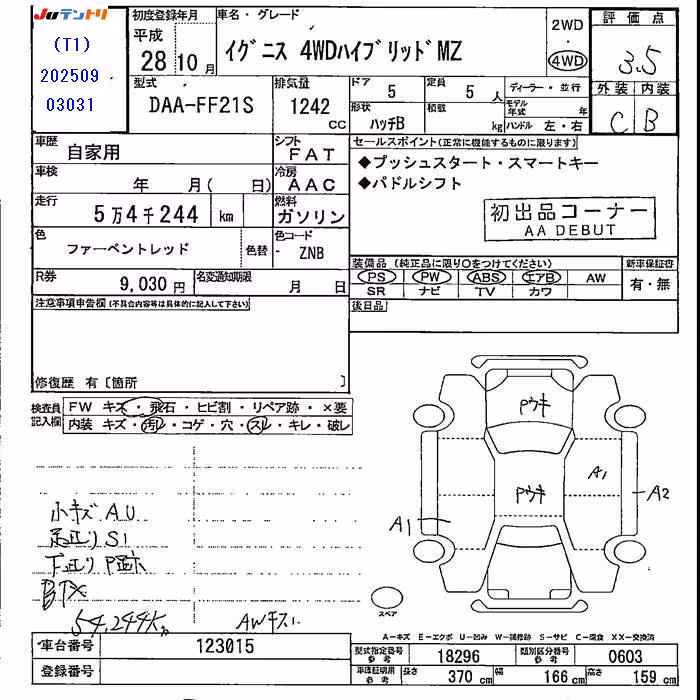 Juテントリ
(T1)
202509
03031
初度登録年月
平成
28 10 月
車名・グレード
イグニス 4WDハイブリッドMZ
2WD
・
4WD
評価点
3.5
外装 内装
C B
型式
DAA-FF21S
排気量
1242
CC
ドア
5
定員
5 人
ディーラー・並行
形状
ハッチB
積載
kg
モデル年式 年
ハンドル 左・右
車歴
自家用
シフト
FAT
セールスポイント(正常に機能するものに限ります)
◆プッシュスタート・スマートキー
◆パドルシフト
車検
年 月( 日)
冷房
AAC
走行
5万4千244 km
燃料
ガソリン
初出品コーナー
AA DEBUT
色
ファーベントレッド
色替
色コード
- ZNB
装備品(純正品に限り○をつけてください)
新車保証書
PS PW ABS エアB AW
SR ナビ TV カワ
有・無
R券
9,030 円
名変通知期限
月 日
後日品
注意事項申告欄(不具合内容等は具体的に記入して下さい)
修復歴 有〔箇所 〕
検査員記入欄
FW キズ・飛石・ヒビ割・リペア跡・×要
内装 キズ・汚レ・コゲ・穴・スレ・キレ・破レ
Pウキ
Pウキ
A1
A2
A1
小キズ A.U
足廻り S1
下廻り P跡
54,244Km
AWキズ
スペア
A-キズ E-エクボ U-凹み W-補修跡 S-サビ C-腐食 XX-交換済
車台番号
123015
登録番号
型式指定番号
参考
18296
類別区分番号
参考
0603
車庫証明用
参考
長さ 370 cm 幅 166 cm 高さ 159 cm